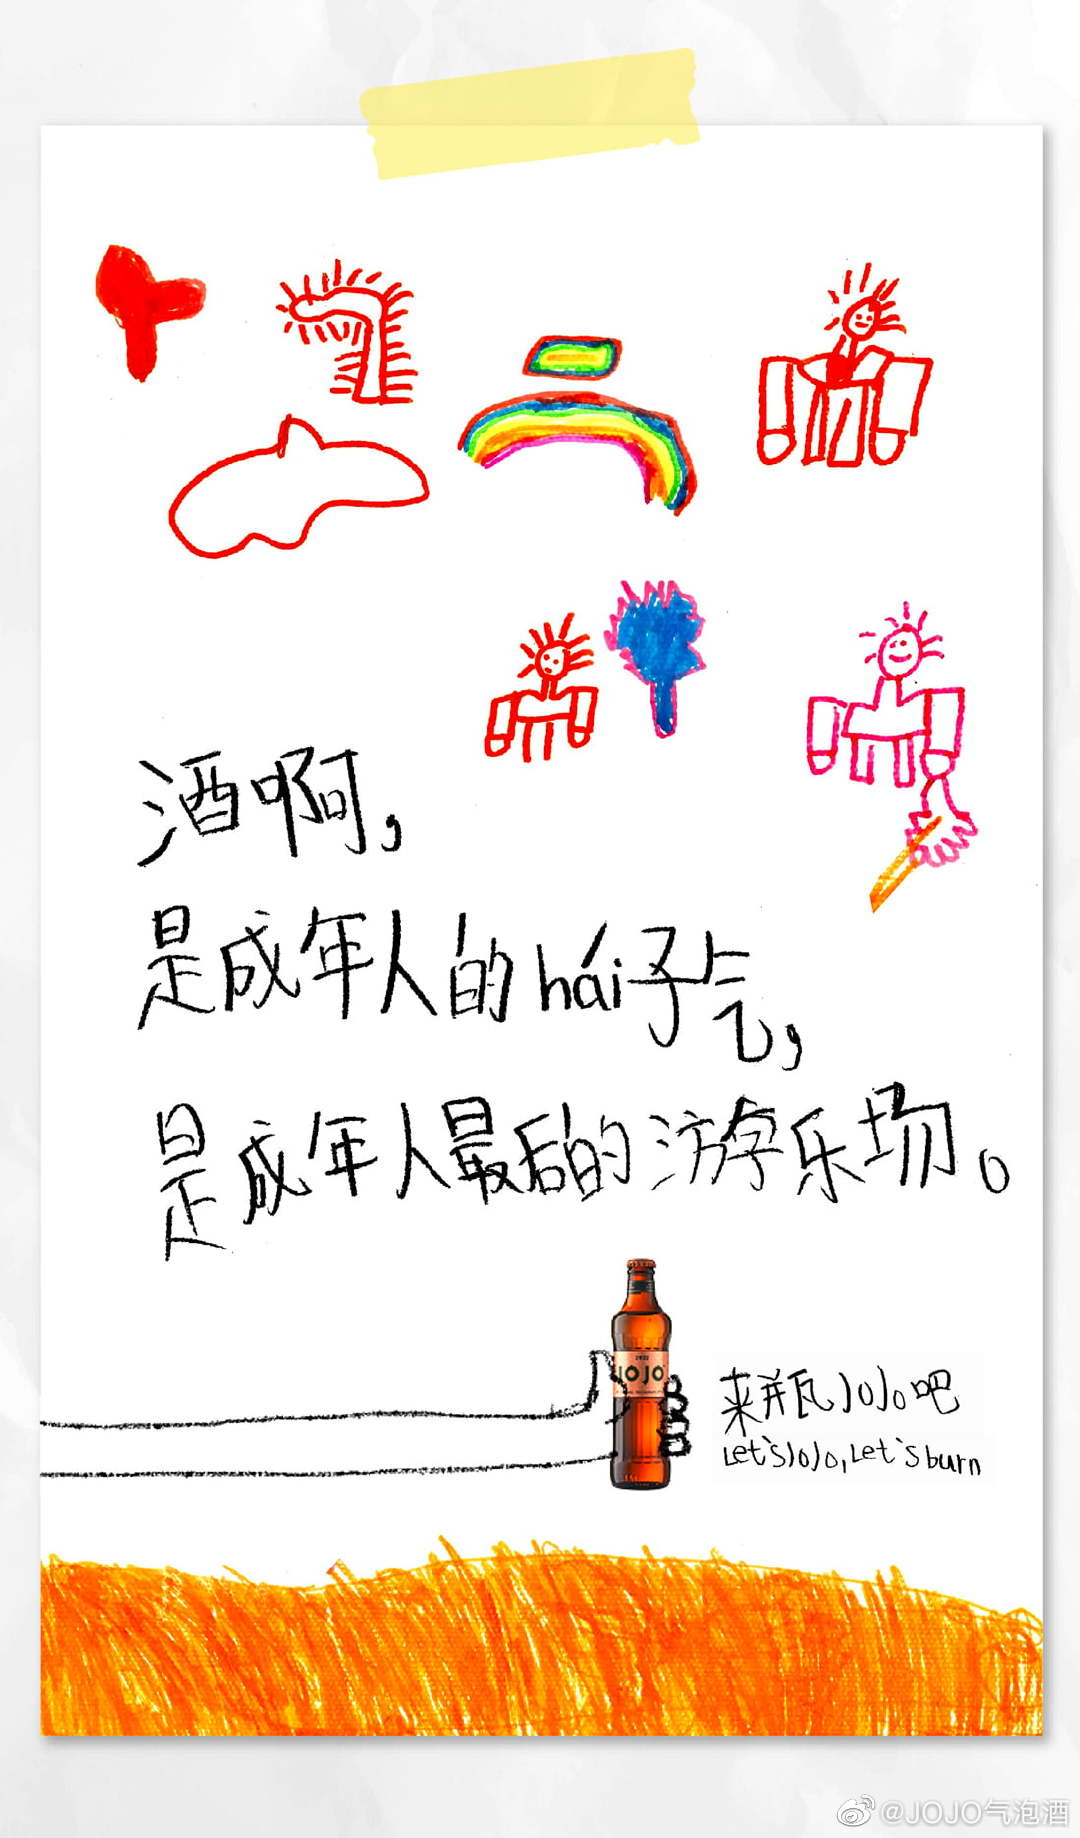 酒啊,
是成年人的hái子气,
是成年人最后的游乐场。
JOJO
来瓶JOJO吧
Let's JOJO, Let's burn
@JOJO气泡酒